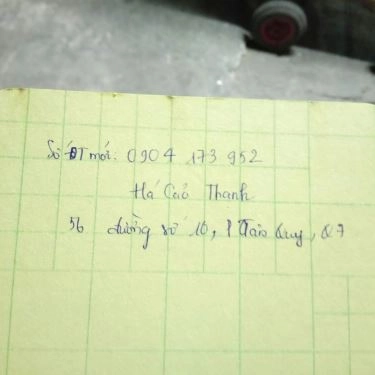 Số ĐT mới: 0904 173 952
Hà Cao Thanh
56 đường số 10, P Tân Quy, Q7